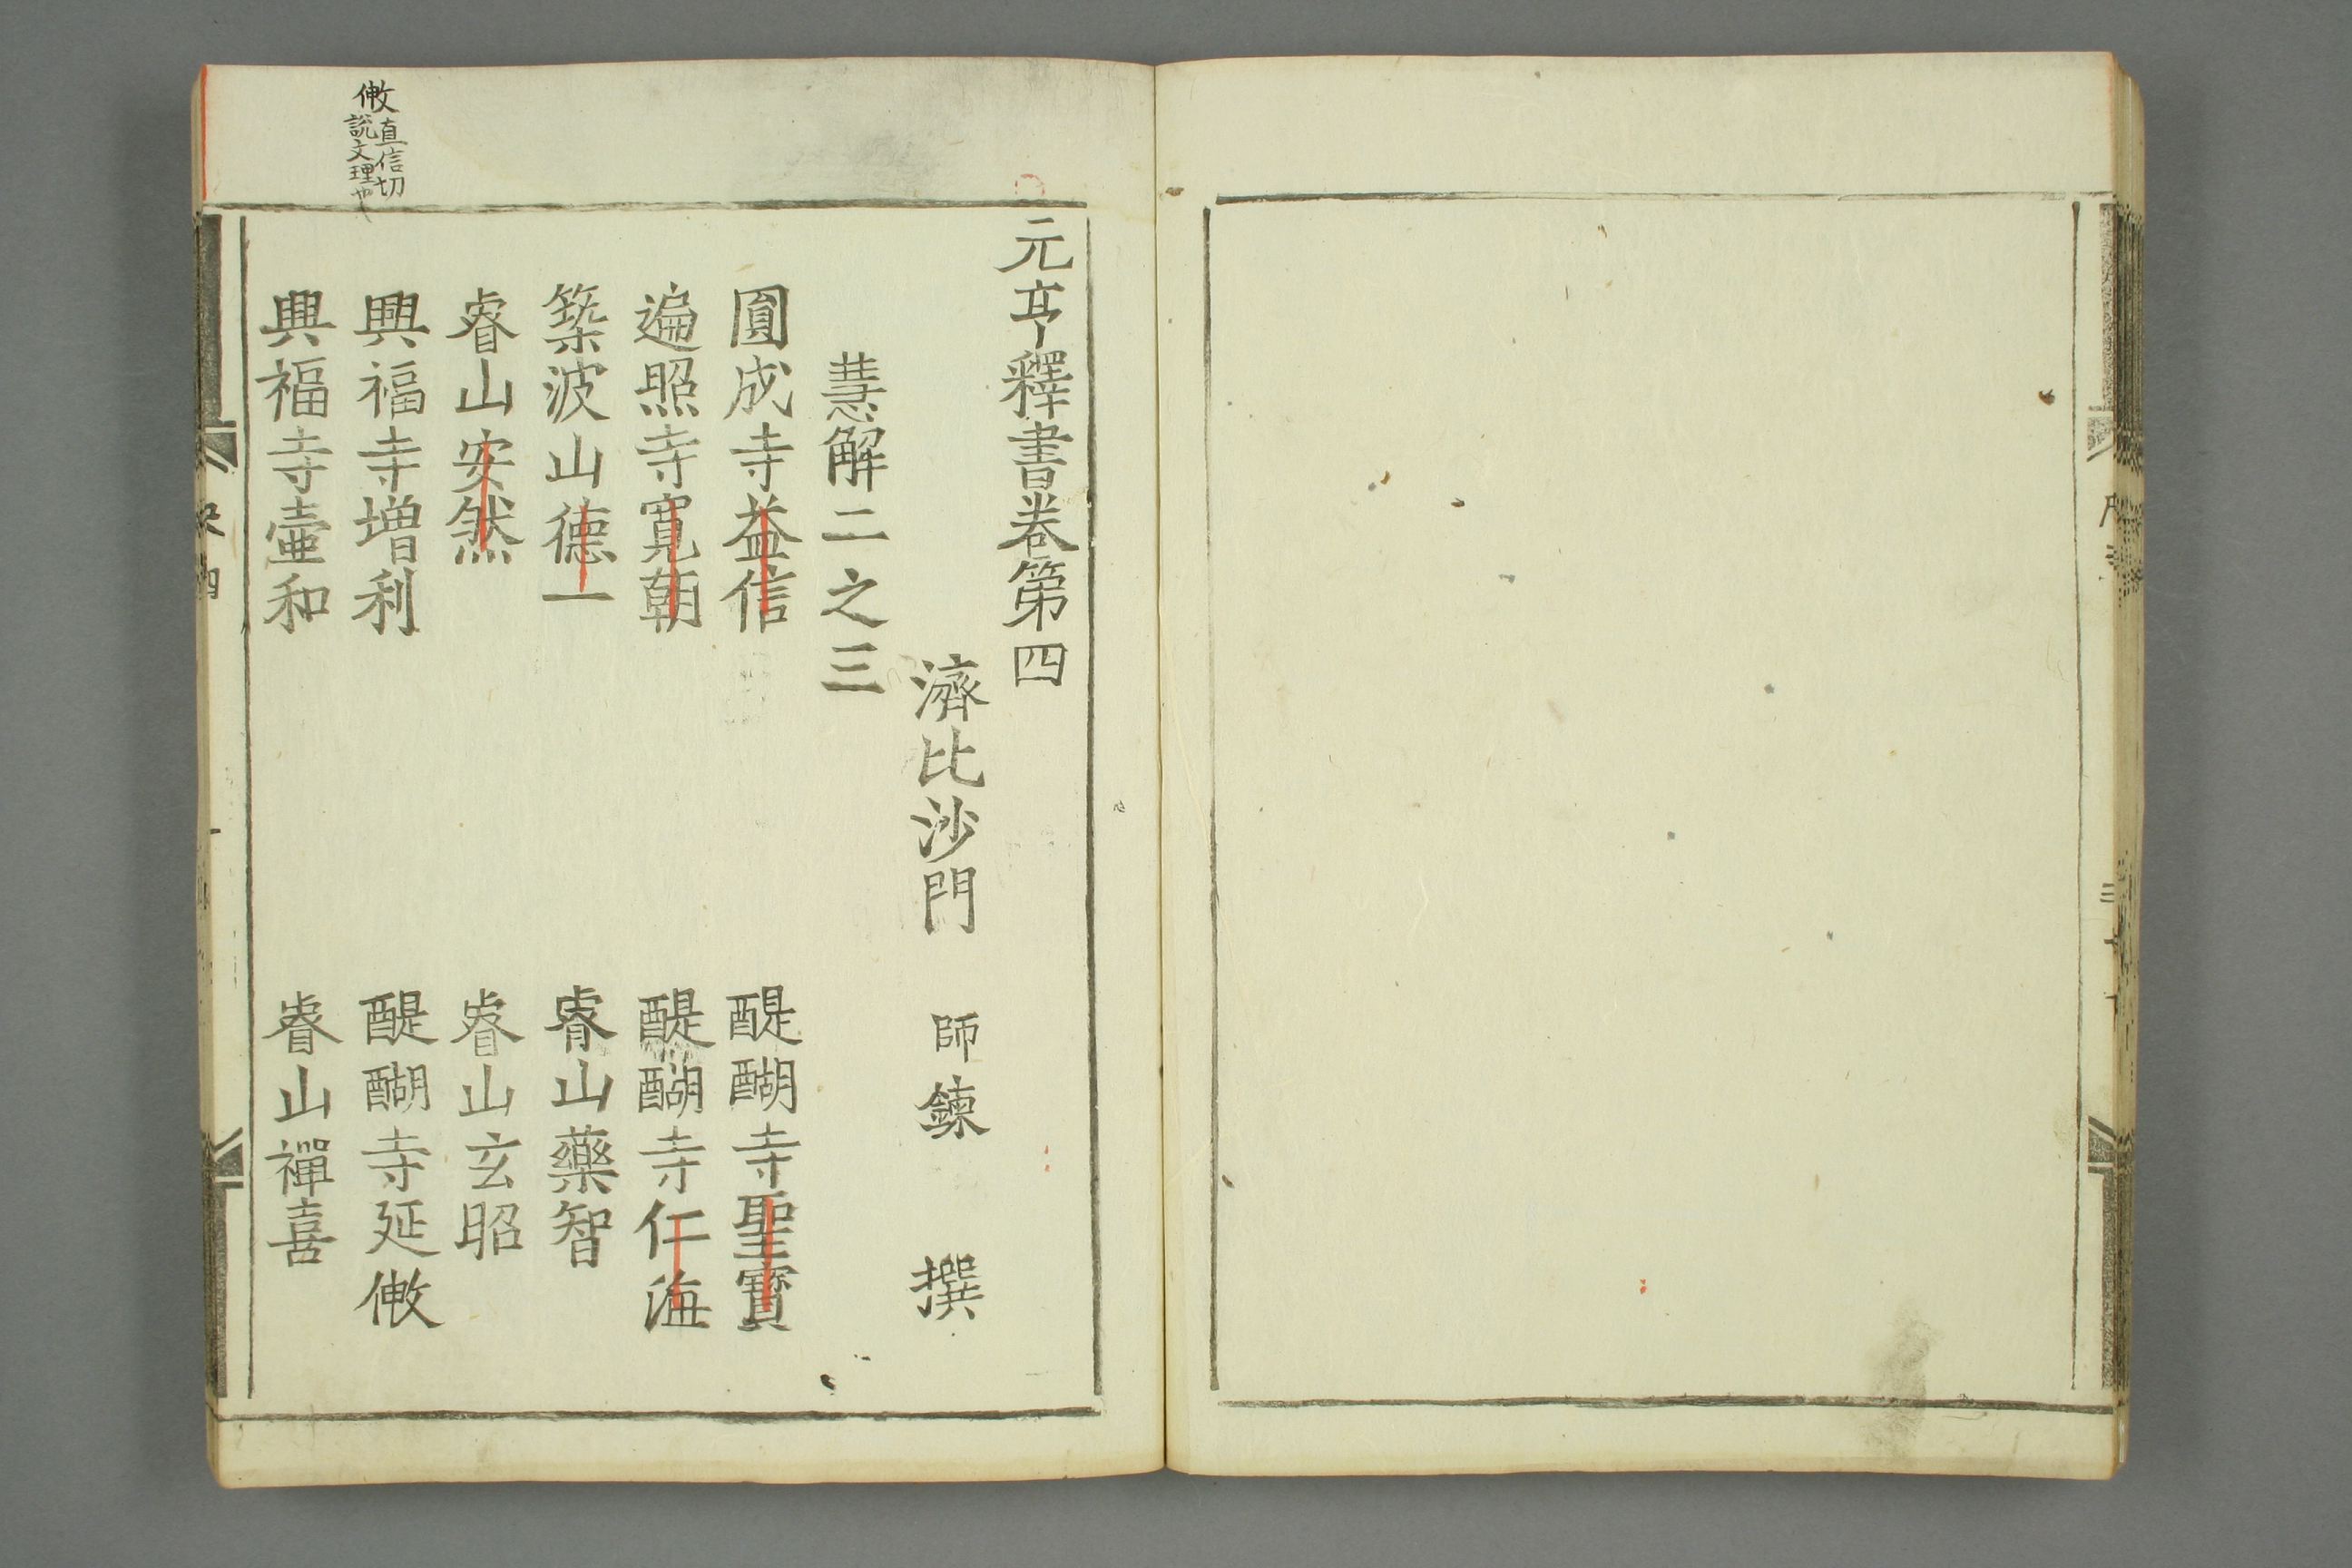 元亨釋書卷第四
濟比沙門　師鍊　撰
慧解二之三
圓成寺益信　醍醐寺聖寶
遍照寺寬朝　醍醐寺仁海
築波山德一　睿山藥智
睿山安然　睿山玄昭
興福寺增利　醍醐寺延敒
興福寺壹和　睿山禪喜
敒直信切
說文理也